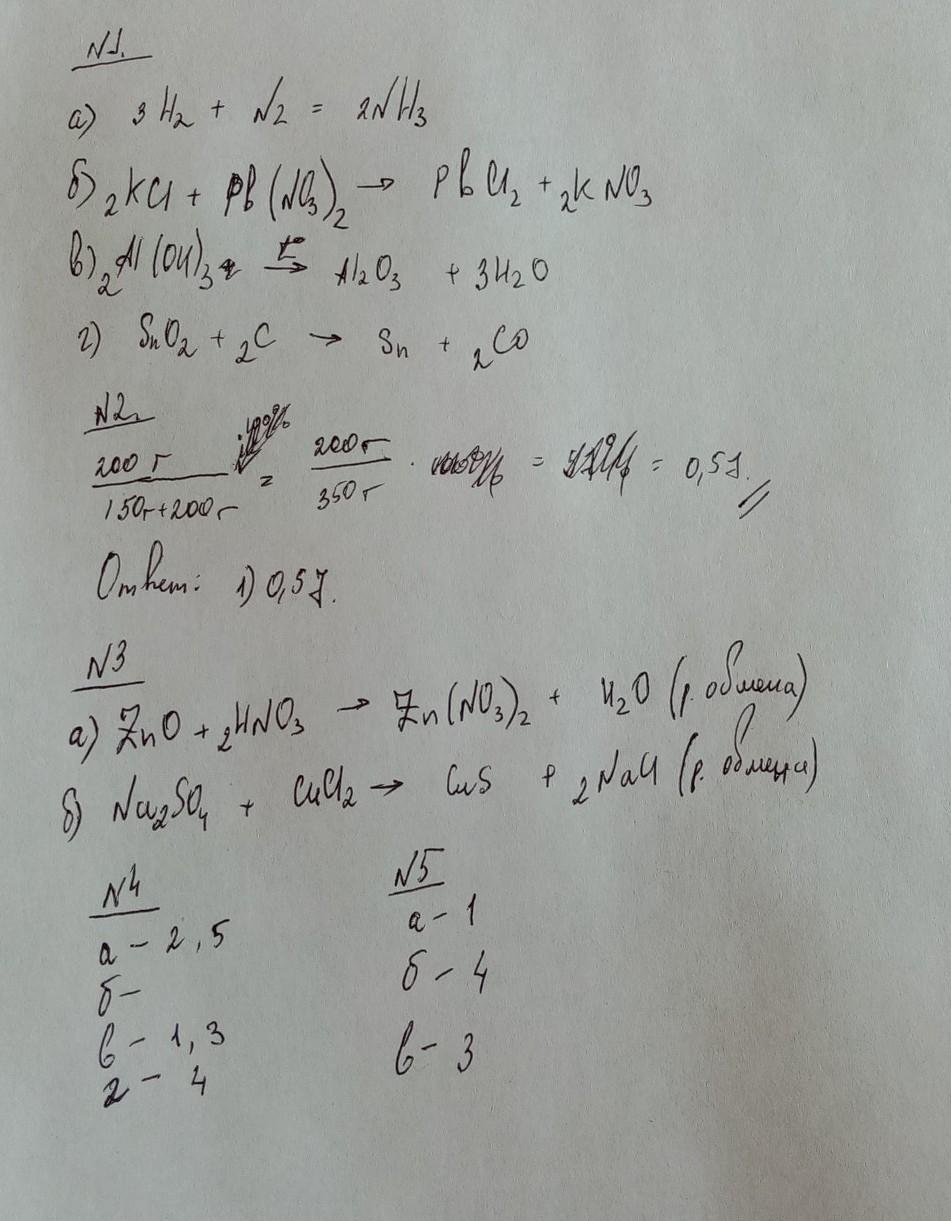 N1.
а) 3H₂ + N₂ = 2NH₃
б) 2KCl + Pb(NO₃)₂ → PbCl₂ + 2KNO₃
в) 2Al(OH)₃ t° → Al₂O₃ + 3H₂O
г) SnO₂ + 2C → Sn + 2CO
N2.
200г / 150г+200г = 200г / 350г · = = 0,57.
Ответ: 1) 0,57.
N3
а) ZnO + 2HNO₃ → Zn(NO₃)₂ + H₂O (р. обмена)
б) Na₂SO₄ + CuCl₂ → CuS + 2NaCl (р. обмена)
N4
а – 2, 5
б –
в – 1, 3
г – 4
N5
а – 1
б – 4
в – 3